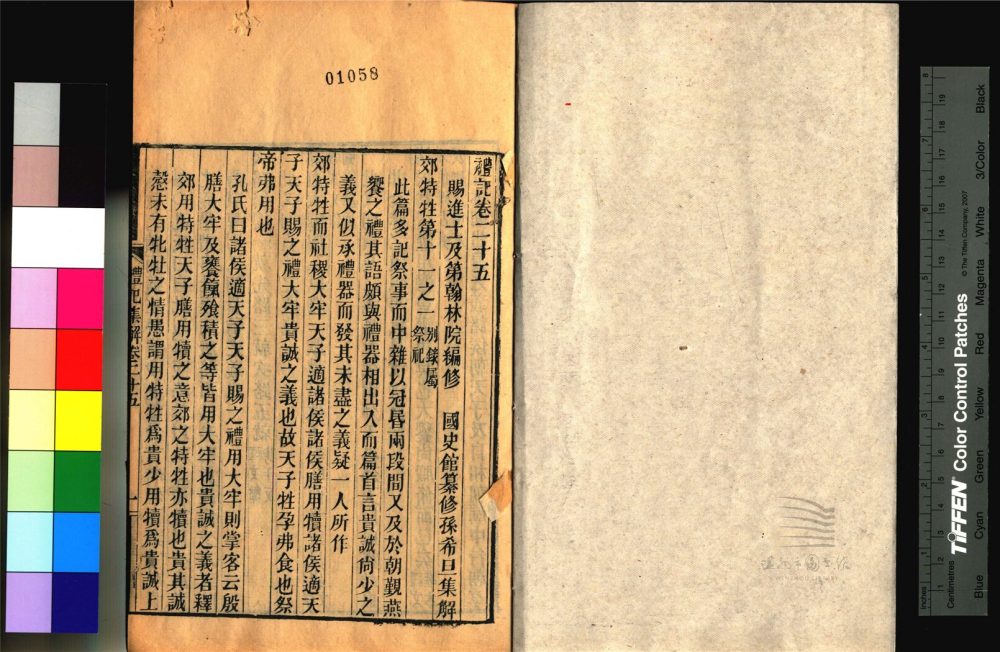 01058
禮記卷二十五
賜進士及第翰林院編修　國史館纂修孫希旦集解
郊特牲第十一之一　別錄屬祭祀
此篇多記祭事而中雜以冠昏兩段間又及於朝覲燕
饗之禮其語頗與禮器相出入而篇首言貴誠尚少之
義又似承禮器而發其未盡之義疑一人所作
郊特牲而社稷大牢天子適諸侯諸侯膳用犢諸侯適天
子天子賜之禮大牢貴誠之義也故天子牲孕弗食也祭
帝弗用也
孔氏曰諸侯適天子天子賜之禮用大牢則掌客云殷
膳大牢及饔餼飧積之等皆用大牢也貴誠之義者釋
郊用特牲天子膳用犢之意郊之特牲亦犢也貴其誠
愨未有牝牡之情愚謂用特牲爲貴少用犢爲貴誠上
禮記集解卷二十五
一
Inches
Centimetres
TIFFEN Color Control Patches
© The Tiffen Company, 2007
Blue
Cyan
Green
Yellow
Red
Magenta
White
3/Color
Black